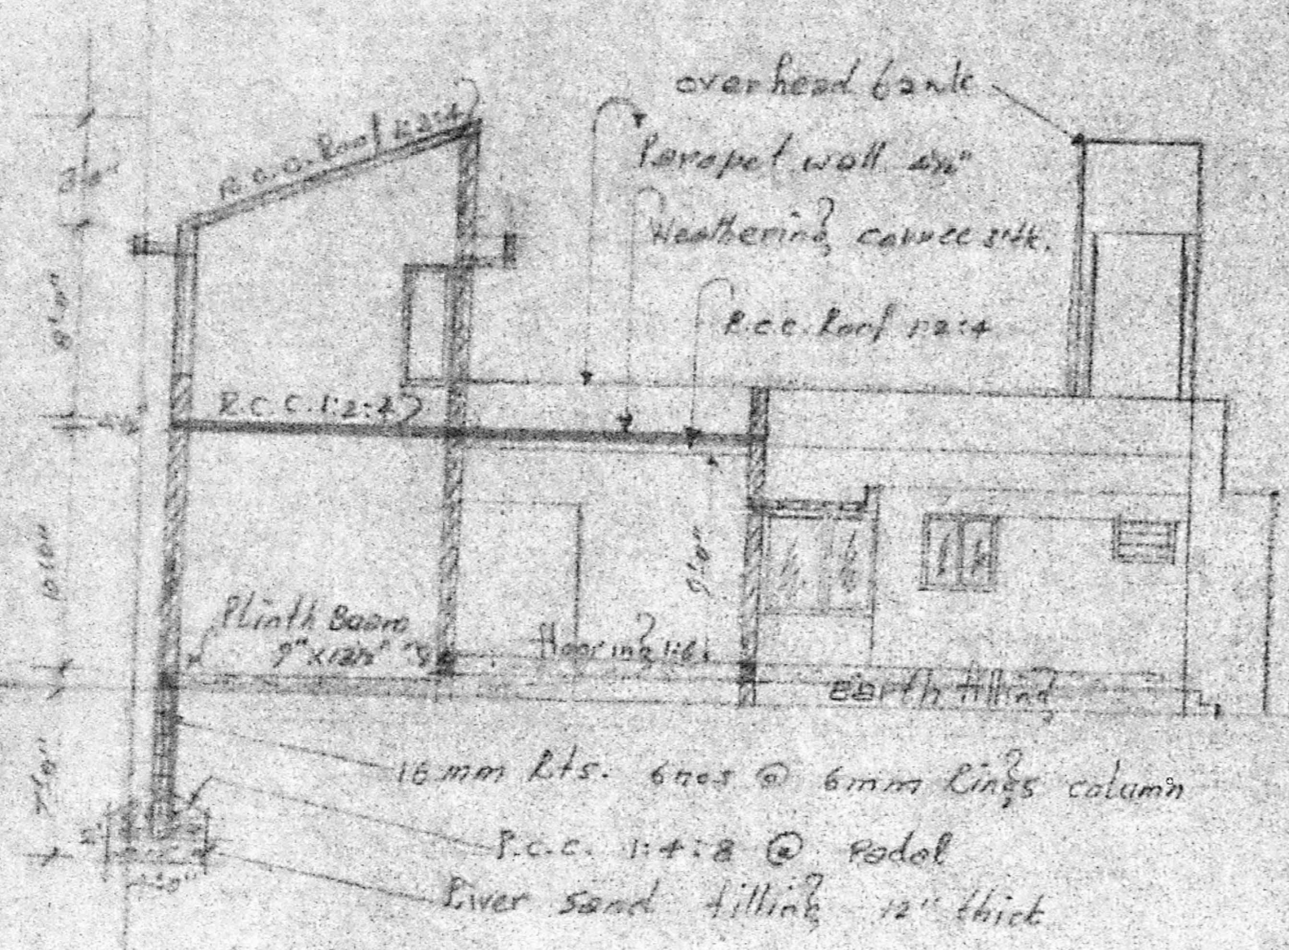 overhead tank
Parapet wall 4½"
Weathering course
R.c.c. Roof 1:2:4
R.c.c. Roof 1:2:4
3'0"
8'0"
R.C.C. 1:2:4
10'0"
9'0"
Plinth Beam
9"x13½"
Flooring 1:6
Earth filling
16 mm Rts. 6nos @ 6mm Rings column
7'0"
P.c.c. 1:4:8 @ Padal
River sand filling 12" thick